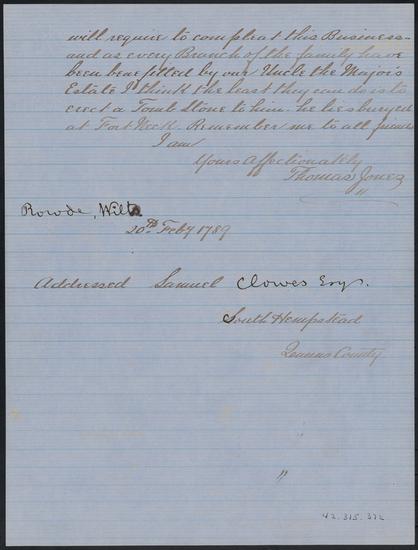 will require to compleat this Business
and as every Branch of the family have
been benefitted by our Uncle the Majors
Estate I think the least they can do is to
erect a Tomb Stone to him. he lies buryed
at Fort Neck. Remember me to all friends
I am
Yours Affectionately
Thomas Jones
"
Rowde, Wilts
20th Feby 1789
Addressed Samuel Clowes Esqr.
South Hempstead
Queens County
"
42.315.372